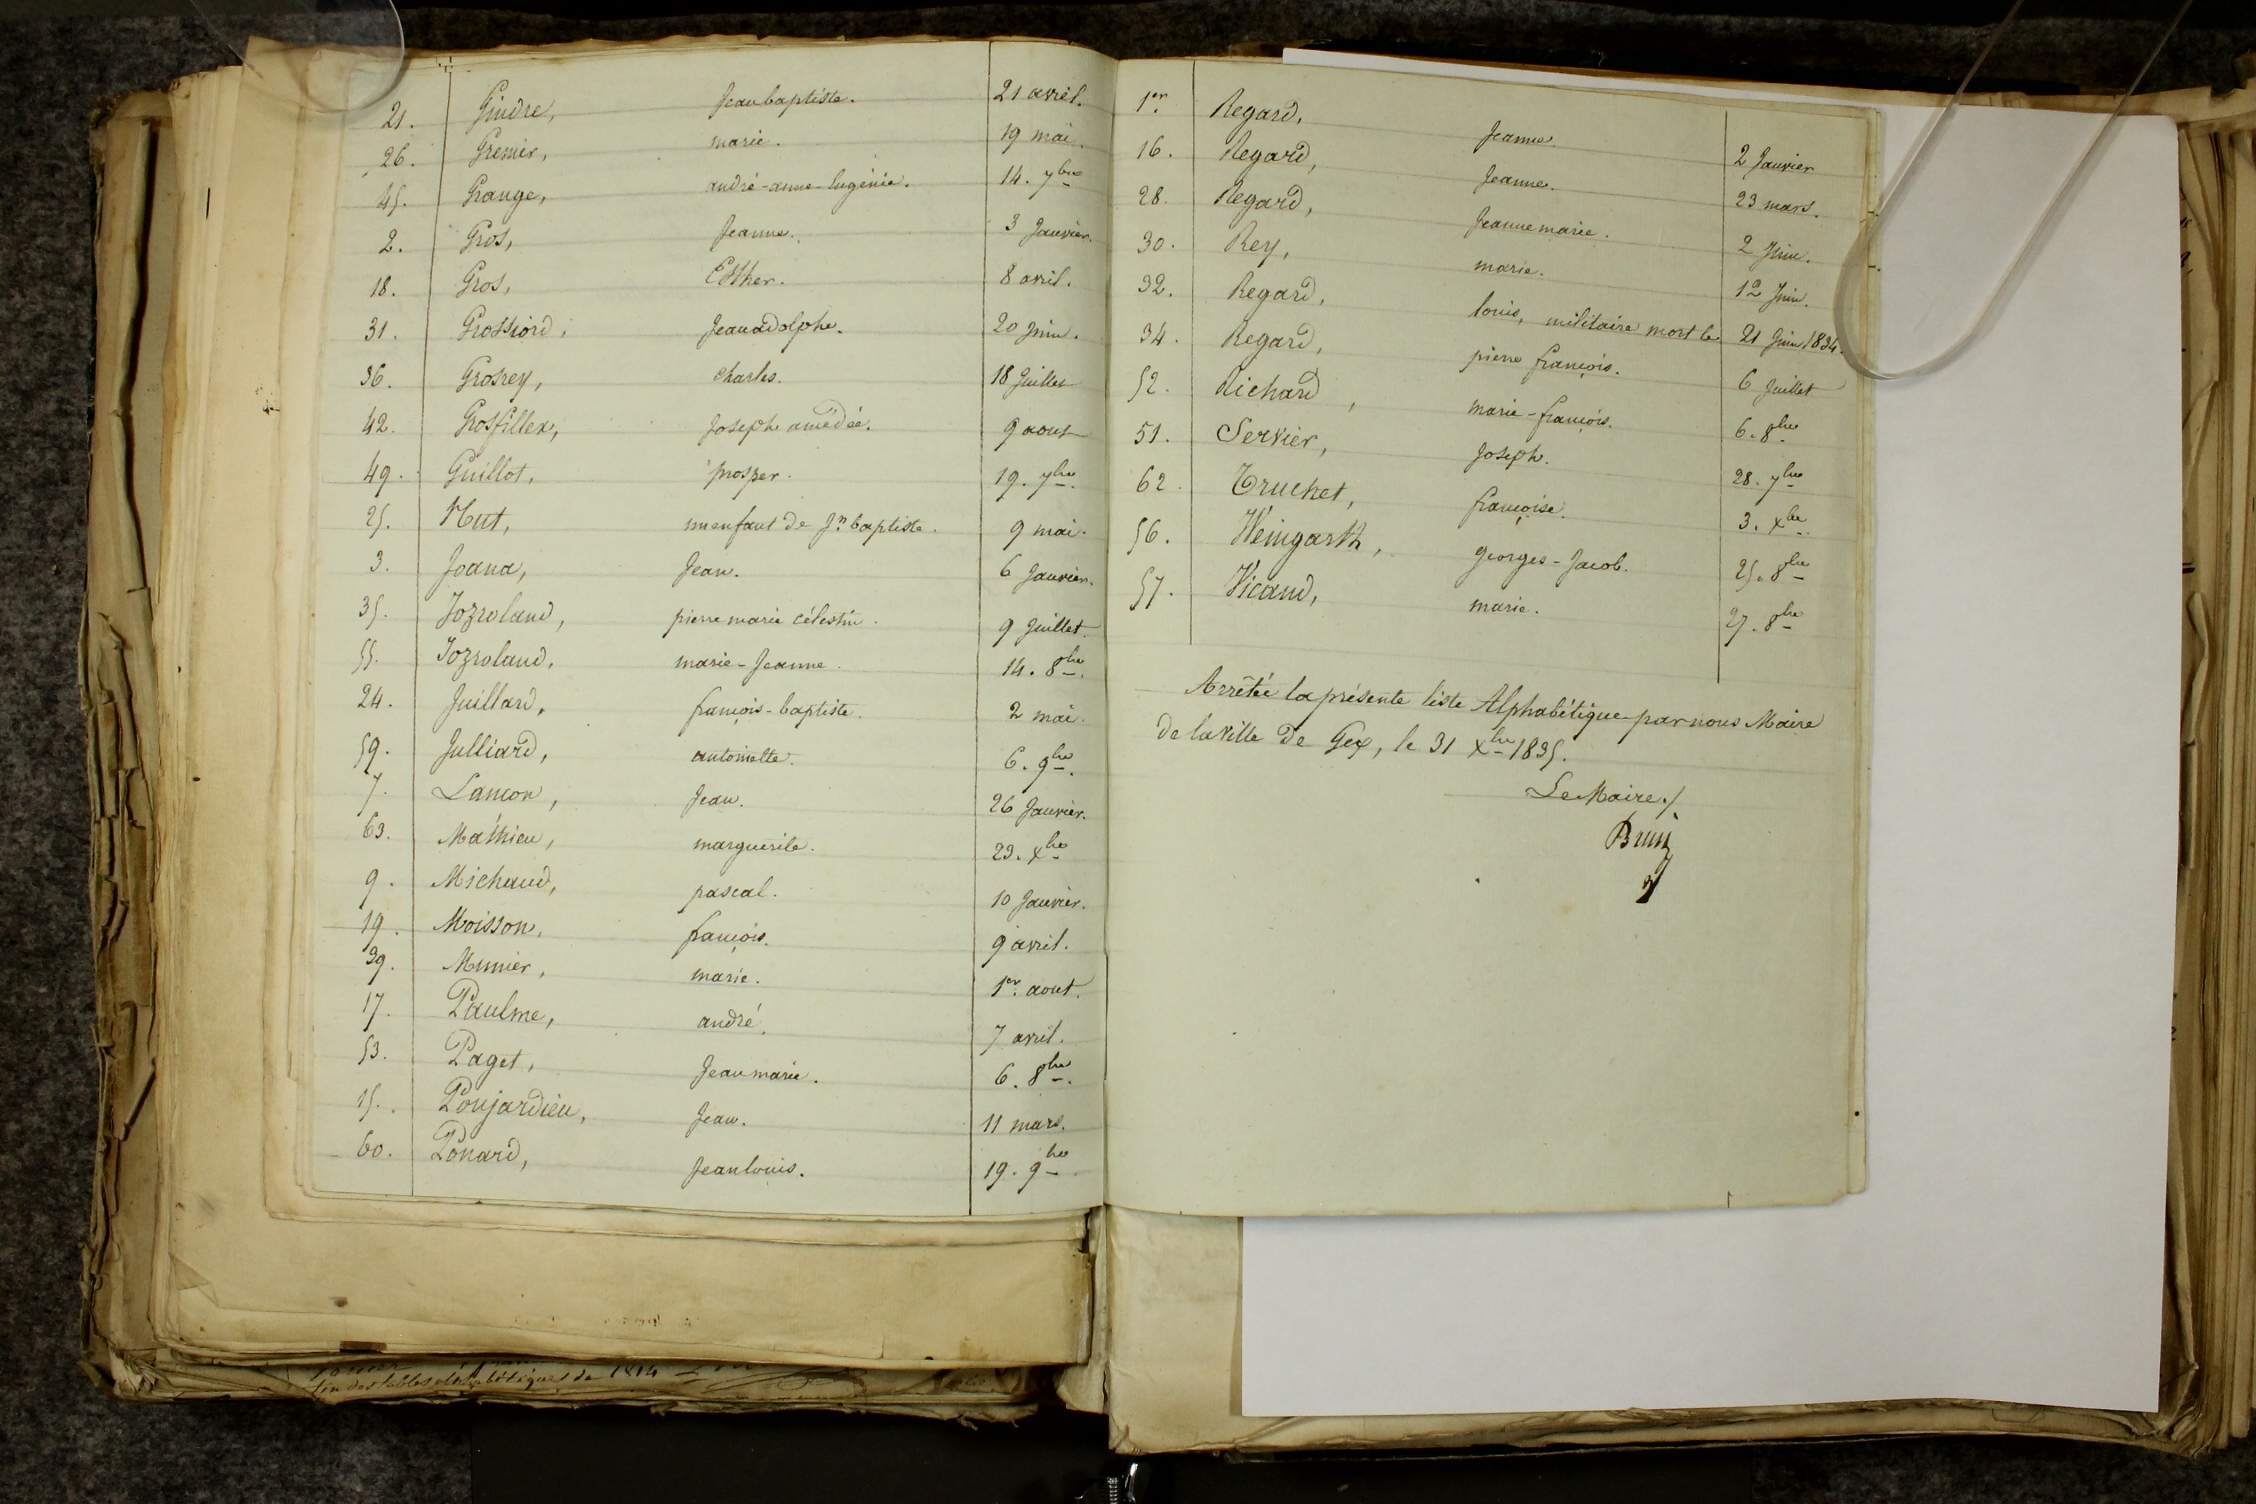 21. Gindre, Jean baptiste. 21 avril.
26. Grenier, marie. 19 mai.
45. Grange, andré-anne-Eugénie. 14. 7bre
2. Gros, Jeanne. 3 Janvier.
18. Gros, Esther. 8 avril.
31. Grossiord, Jean adolphe. 20 Juin.
36. Grosrey, Charles. 18 Juillet
42. Grosfillex, Joseph amédée. 9 aout
49. Guillot, prosper. 19. 7bre.
25. Hut, un enfant de Jn. baptiste. 9 mai.
3. Joana, Jean. 6 Janvier.
35. Jozroland, pierre marie célestin. 9 Juillet.
55. Jozroland, marie-Jeanne. 14. 8bre.
24. Juillard, françois-baptiste. 2 mai.
59. Julliard, antoinette. 6. 9bre.
7. Lancon, Jean. 26 Janvier.
63. Mathieu, marguerite. 23. Xbre
9. Michaud, pascal. 10 Janvier.
19. Moisson, françois. 9 avril.
39. Munier, marie. 1er. aout.
17. Paulme, andré. 7 avril.
53. Paget, Jean marie. 6. 8bre.
15. Poujardieu, Jean. 11 mars.
60. Ponard, Jean louis. 19. 9bre
1er. Regard, Jeanne. 2 Janvier
16. Regard, Jeanne. 23 mars.
28. Regard, Jeanne marie. 2 Juin.
30. Rey, marie. 12 Juin.
32. Regard, louis, militaire mort le 21 Juin 1834.
34. Regard, pierre françois. 6 Juillet
52. Richard, marie-françois. 6. 8bre
51. Servier, Joseph. 28. 7bre
62. Truchet, françoise. 3. Xbre.
56. Weingarth, georges-Jacob. 25. 8bre
57. Vicaud, marie. 27. 8bre
Arrêtée la présente liste Alphabétique par nous Maire
de la ville de Gex, le 31 Xbre 1835.
Le Maire./.
Brun
fin des tables alphabétiques de 1814